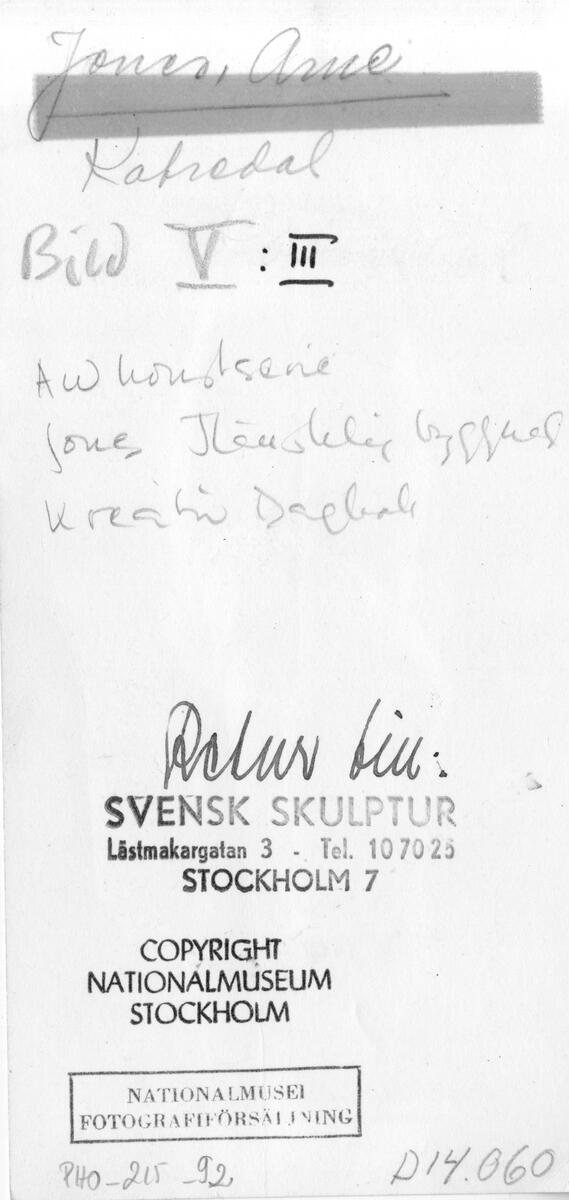 Jones, Arne
Katredal
Bild V : III
AW konstserie
Jones Mänsklig byggnad
Kreativ Dagbok
Retur till:
SVENSK SKULPTUR
Lästmakargatan 3 - Tel. 107025
STOCKHOLM 7
COPYRIGHT
NATIONALMUSEUM
STOCKHOLM
NATIONALMUSEI
FOTOGRAFIFÖRSÄLJNING
PHO-215-92
D14.060